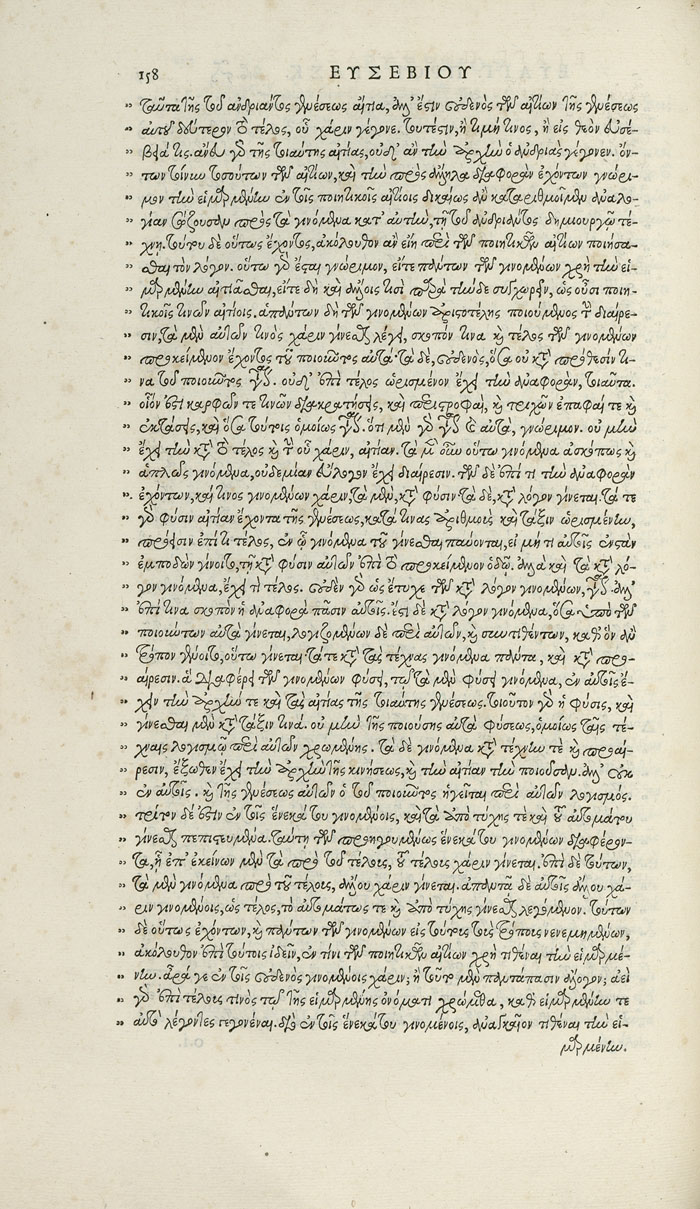 158 ΕΥΣΕΒΙΟΥ
„ ταῦτα τῆς τοῦ ἀνδριάντος γενέσεως αἴτια, ἀλλ' ἔστιν οὐδενὸς τῶν αἰτίων τῆς γενέσεως
„ αὐτοῦ δεύτερον τὸ τέλος, οὗ χάριν γέγονε. τουτέστιν, ἢ τιμή τινος, ἢ εἰς θεὸν εὐσέ-
„ βειά τις. ἄνευ γὰρ τῆς τοιαύτης αἰτίας, οὐδ' ἂν τὴν ἀρχὴν ὁ ἀνδριὰς γέγονεν. ὄν-
„ των τοίνυν τοσούτων τῶν αἰτίων, καὶ τὴν πρὸς ἄλληλα διαφορὰν ἐχόντων γνώρι-
„ μον τὴν εἱμαρμένην ἐν τοῖς ποιητικοῖς αἰτίοις δικαίως ἂν καταριθμοῖμεν ἀναλο-
„ γίαν σώζουσαν πρὸς τὰ γινόμενα κατ' αὐτὴν, τῇ τοῦ ἀνδριάντος δημιουργῷ τέ-
„ χνῃ. τούτου δὲ οὕτως ἔχοντος, ἀκόλουθον ἂν εἴη περὶ τῶν ποιητικῶν αἰτίων ποιήσα-
„ σθαι τὸν λόγον. οὕτω γὰρ ἔσται γνώριμον, εἴτε πάντων τῶν γινομένων χρὴ τὴν εἱ-
„ μαρμένην αἰτιᾶσθαι, εἴτε δὴ καὶ ἄλλοις τισὶ παρὰ τήνδε συγχωρεῖν, ὡς οὖσι ποιη-
„ τικοῖς τινῶν αἰτίοις. ἁπάντων δὴ τῶν γινομένων Ἀριστοτέλης ποιούμενος τὴν διαίρε-
„ σιν, τὰ μὲν αὐτῶν τινὸς χάριν γίνεσθαι λέγει, σκοπόν τινα καὶ τέλος τῶν γινομένων
„ προκείμενον ἔχοντος τοῦ ποιοῦντος αὐτά· τὰ δὲ, οὐδενός, ὅσα οὐ κατὰ πρόθεσίν τι-
„ να τοῦ ποιοῦντος γίνεται. οὐδ' ἐπὶ τέλος ὡρισμένον ἔχει τὴν ἀναφορὰν, τοιαῦτα.
„ οἷόν ἐστι καρφῶν τε τινῶν διακρατήσεις, καὶ περιστροφαὶ, καὶ τριχῶν ἐπαφαί τε καὶ
„ ἐκτάσεις, καὶ ὅσα τούτοις ὁμοίως γίνεται. ὅτι μὲν γὰρ γίνεται καὶ αὐτὰ, γνώριμον. οὐ μὴν
„ ἔχει τὴν κατὰ τὸ τέλος καὶ τὴν οὗ χάριν, αἰτίαν. τὰ μὲν οὖν οὕτω γινόμενα ἀσκόπως καὶ
„ ἁπλῶς γινόμενα, οὐδεμίαν εὔλογον ἔχει διαίρεσιν. τῶν δὲ ἐπί τι τὴν ἀναφορὰν
„ ἐχόντων, καί τινος γινομένων χάριν, τὰ μὲν, κατὰ φύσιν· τὰ δὲ, κατὰ λόγον γίνεται. τά τε
„ γὰρ φύσιν αἰτίαν ἔχοντα τῆς γενέσεως, κατά τινας ἀριθμοὺς καὶ τάξιν ὡρισμένην,
„ πρόεισιν ἐπί τι τέλος, ἐν ᾧ γινόμενα τοῦ γίνεσθαι παύονται, εἰ μή τι αὐτοῖς ἐνστὰν
„ ἐμποδὼν γίνοιτο, τῇ κατὰ φύσιν αὐτῶν ἐπὶ τὸ προκείμενον ὁδῷ. ἀλλὰ καὶ τὰ κατὰ λό-
„ γον γινόμενα, ἔχει τι τέλος. οὐδὲν γὰρ ὡς ἔτυχε τῶν κατὰ λόγον γινομένων, γίνεται. ἀλλ'
„ ἐπί τινα σκοπὸν ἡ ἀναφορὰ πᾶσιν αὐτοῖς. ἔστι δὲ κατὰ λόγον γινόμενα, ὅσα ὑπὸ τῶν
„ ποιούντων αὐτὰ γίνεται, λογιζομένων δὲ περὶ αὐτῶν, καὶ συντιθέντων, καθ' ὃν ἂν
„ τρόπον γένοιτο, οὕτω γίνεται· τά τε κατὰ τὰς τέχνας γινόμενα πάντα, καὶ κατὰ προ-
„ αίρεσιν. ἃ διαφέρει τῶν γινομένων φύσει, τῷ τὰ μὲν φύσει γινόμενα, ἐν αὐτοῖς ἔ-
„ χειν τὴν ἀρχήν τε καὶ τὰς αἰτίας τῆς τοιαύτης γενέσεως. τοιοῦτον γὰρ ἡ φύσις, καὶ
„ γίνεσθαι μὲν κατὰ τάξιν τινά. οὐ μὴν τῆς ποιούσης αὐτὰ φύσεως, ὁμοίως ταῖς τέ-
„ χναις λογισμῷ περὶ αὐτῶν χρωμένης. τὰ δὲ γινόμενα κατὰ τέχνην τε καὶ προαί-
„ ρεσιν, ἔξωθεν ἔχει τὴν ἀρχὴν τῆς κινήσεως, καὶ τὴν αἰτίαν τὴν ποιοῦσαν. ἀλλ' οὐκ
„ ἐν αὐτοῖς. καὶ τῆς γενέσεως αὐτῶν ὁ τοῦ ποιοῦντος ἡγεῖται περὶ αὐτῶν λογισμός.
„ τρίτον δέ ἐστιν ἐν τοῖς ἕνεκά του γινομένοις, καὶ τὰ ἀπὸ τύχης τε καὶ τοῦ αὐτομάτου
„ γίνεσθαι πεπιστευμένα. ταύτῃ τῶν προηγουμένως ἕνεκά του γινομένων διαφέρον-
„ τα, ᾗ ἐπ' ἐκείνων μὲν τὰ πρὸ τοῦ τέλους, τοῦ τέλους χάριν γίνεται. ἐπὶ δὲ τούτων,
„ τὰ μὲν γινόμενα πρὸ τοῦ τέλους, ἄλλου χάριν γίνεται. ἀπαντᾷ δὲ αὐτοῖς ἄλλου χά-
„ ριν γινομένοις, ὡς τέλος, τὸ αὐτομάτως τε καὶ ἀπὸ τύχης γίνεσθαι λεγόμενον. τούτων
„ δὲ οὕτως ἐχόντων, καὶ πάντων τῶν γινομένων εἰς τούτους τοὺς τρόπους νενεμημένων,
„ ἀκόλουθον ἐπὶ τούτοις ἰδεῖν, ἐν τίνι τῶν ποιητικῶν αἰτίων χρὴ τιθέναι τὴν εἱμαρμέ-
„ νην. ἆρά γε ἐν τοῖς οὐδενὸς γινομένοις χάριν; ἢ τοῦτο μὲν παντάπασιν ἄλογον; ἀεὶ
„ γὰρ ἐπὶ τέλους τινὸς τῷ τῆς εἱμαρμένης ὀνόματι χρώμεθα, καθ' εἱμαρμένην τε
„ αὐτὸ λέγοντες γεγονέναι. διὸ ἐν τοῖς ἕνεκά του γινομένοις, ἀναγκαῖον τιθέναι τὴν εἱ-
μαρμένην.